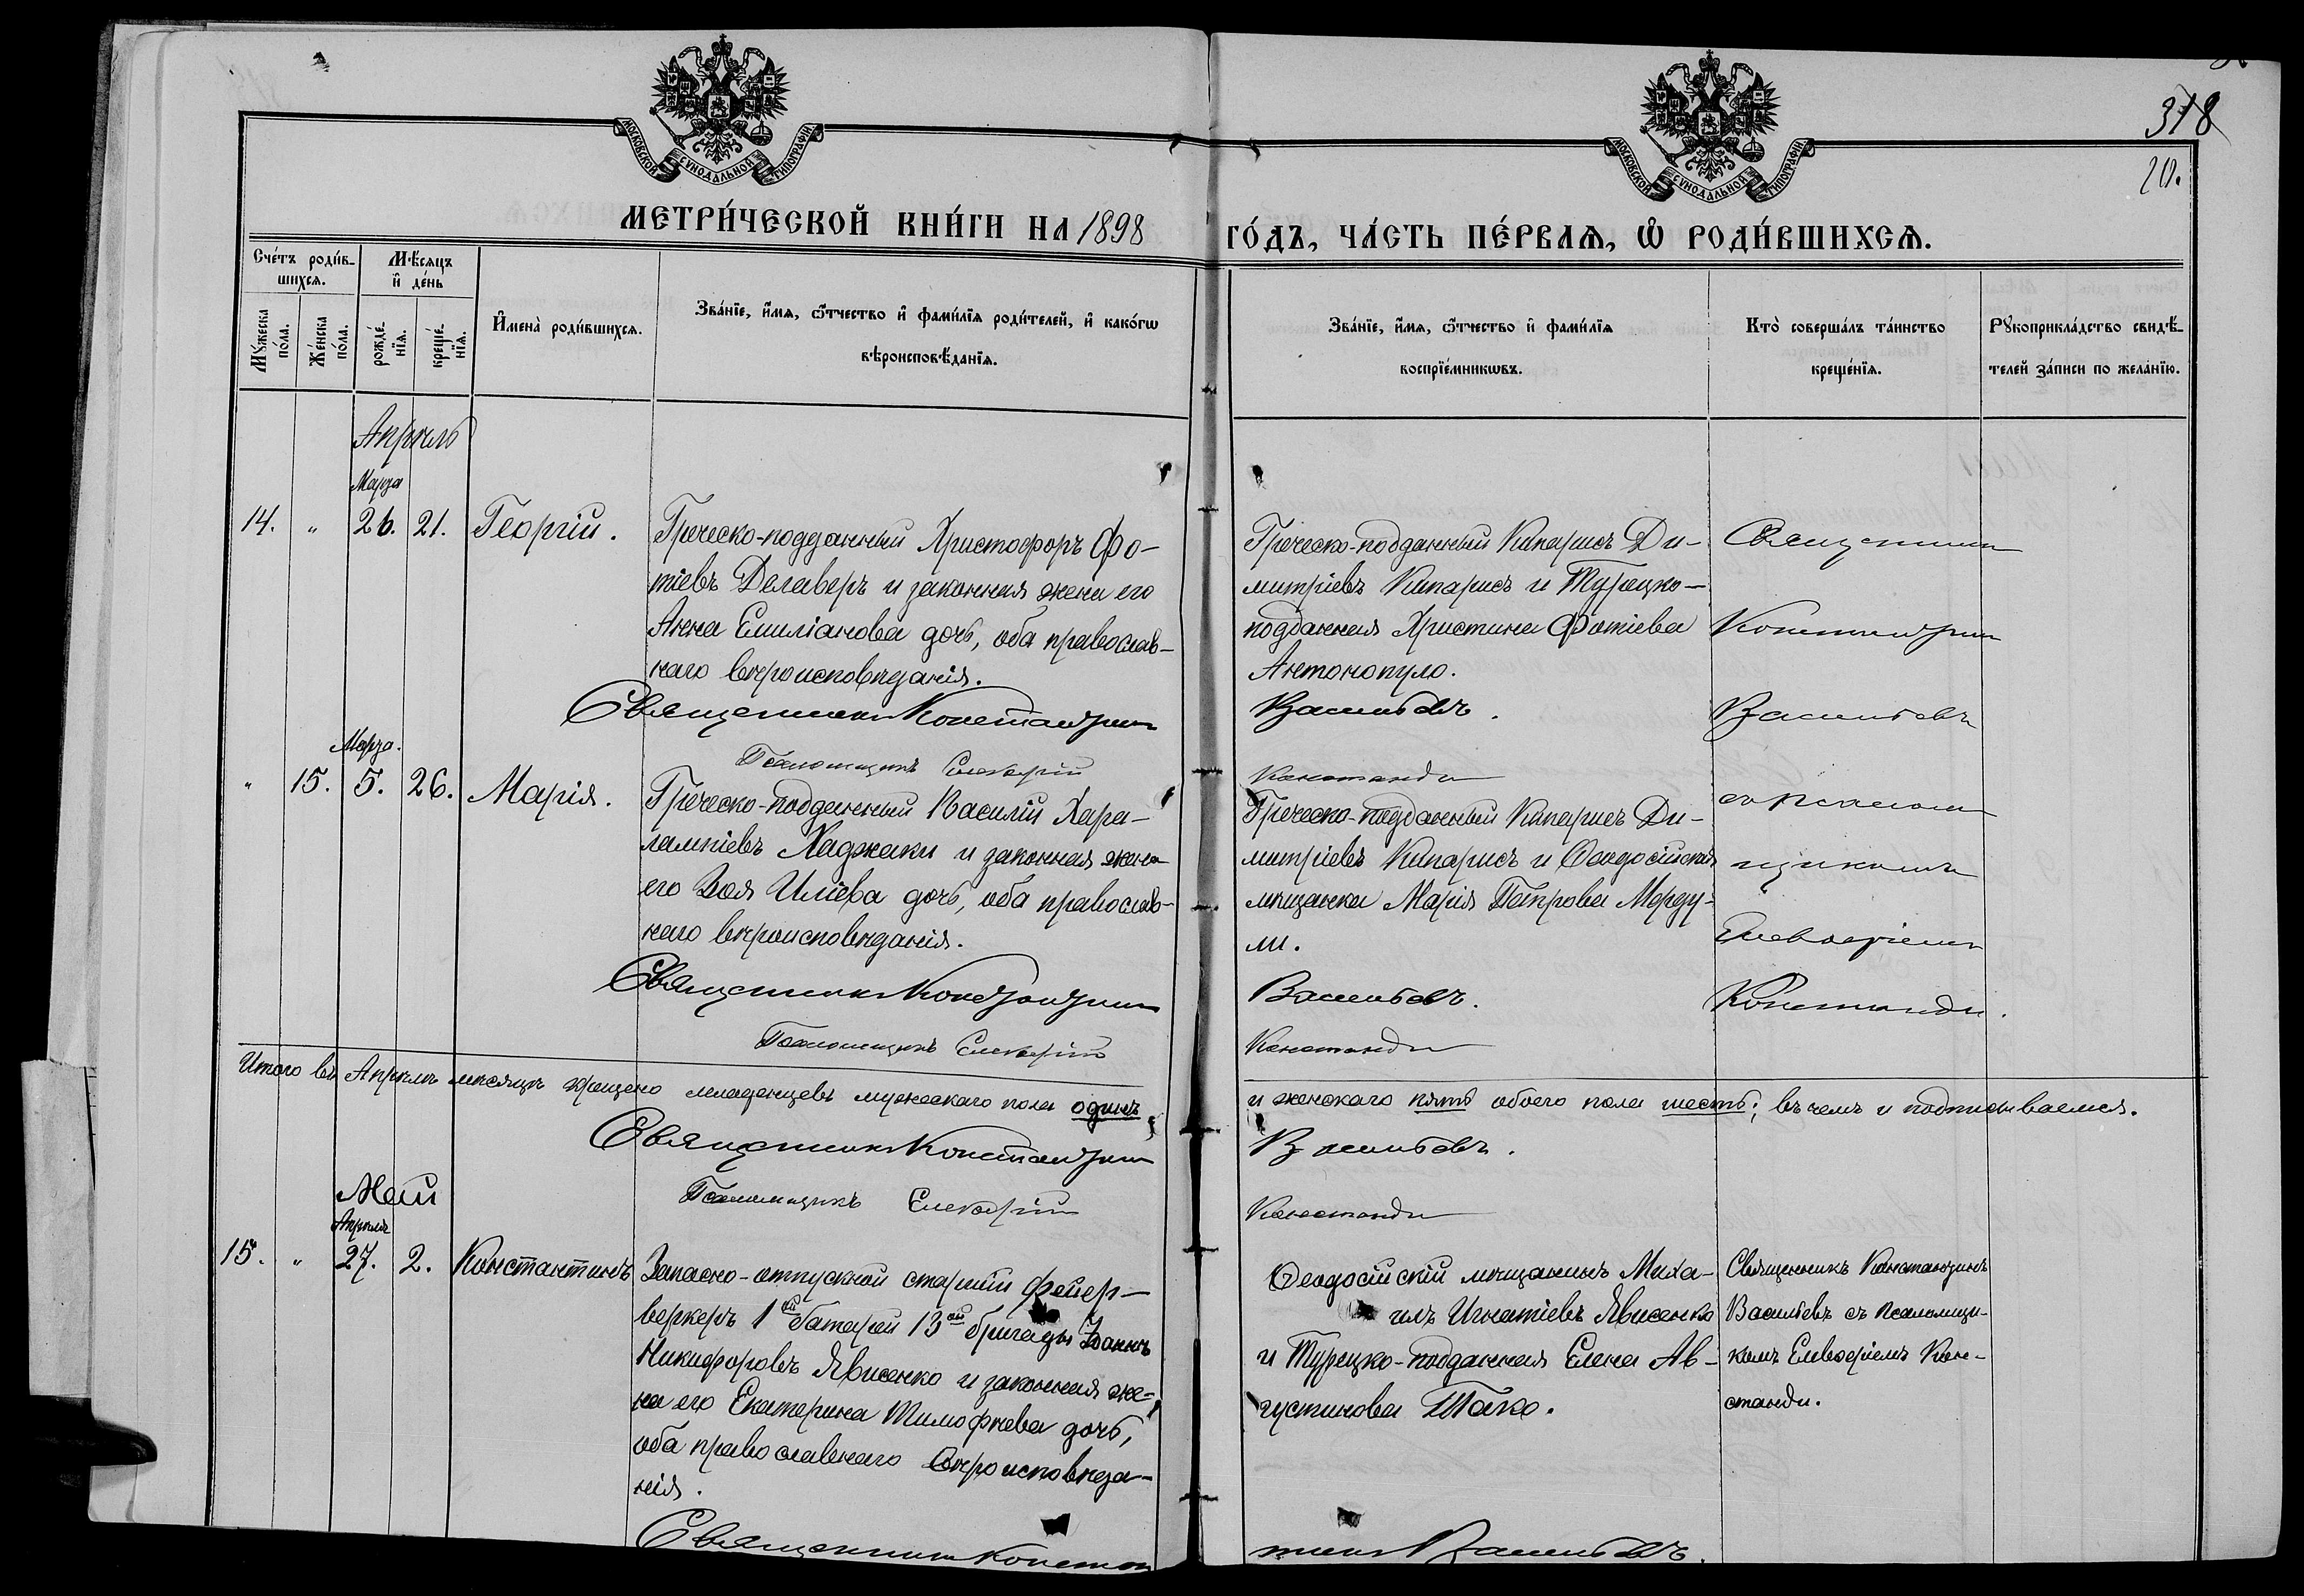 МОСКОВСКОЙ СУНОДАЛЬНОЙ ТИПОГРАФІИ
МОСКОВСКОЙ СУНОДАЛЬНОЙ ТИПОГРАФІИ
318
20.
МЕТРИ́ЧЕСКОЙ КНИ́ГИ НА 1898
ГО́ДЪ, ЧА́СТЬ ПЕ́РВАЯ, Ѡ҆ РОДИ́ВШИХСЯ.
Сче́тъ роди́в-
шихся.
Мѣ́сяцъ
и҆ де́нь
Мꙋ́жеска
по́ла.
Же́нска
по́ла.
рожде́-
нїя.
креще́-
нїя.
И҆мена̀ роди́вшихся.
Зва́нїе, и҆́мя, ѻ҆́тчество и҆ фами́лїя роди́телей, и҆ како́гѡ
вѣроисповѣ́данїя.
Зва́нїе, и҆́мя, ѻ҆́тчество и҆ фами́лїя
воспрїе́мникѡвъ.
Кто̀ соверша́лъ та́инство
креще́нїя.
Рꙋкоприкла́дство свидѣ́-
телей за́писи по жела́нїю.
Апрѣль
Марта
14. " 26. 21. Георгій.
Греческо-подданный Христофоръ Фо-
тіевъ Делаверъ и законная жена его
Анна Емиліанова дочь, оба православ-
наго вѣроисповѣданія.
Священникъ Константинъ
Псаломщикъ Елевѳерій
Греческо-подданный Кипарисъ Ди-
митріевъ Кипарисъ и Турецко-
подданная Христина Фотіева
Антонопуло.
Васильевъ.
Констанди
Священникъ
Константинъ
Васильевъ
съ псалом
щикомъ
Елевѳеріемъ
Констанди.
Марта.
" 15. 5. 26. Марія.
Греческо-подданный Василій Хара-
лампіевъ Хаджаки и законная жена
его Зоя Иліева дочь, оба православ-
наго вѣроисповѣданія.
Священникъ Константинъ
Псаломщикъ Елевѳерій
Греческо-подданный Кипарисъ Ди-
митріевъ Кипарисъ и Ѳеодосійская
мѣщанка Марія Петрова Марду-
ли.
Васильевъ.
Констанди
Итого въ Апрѣлѣ мѣсяцѣ крещено младенцевъ мужескаго пола одинъ,
и женскаго пять обоего пола шесть; въ чемъ и подписываемся.
Священникъ Константинъ
Васильевъ.
Псаломщикъ Елевѳерій
Констанди
Май
Апрѣля
15. " 27. 2. Константинъ
Запасно-отпускной старшій фейер-
веркеръ 1ой батареи 13ой бригады Іоаннъ
Никифоровъ Явисенко и законная же-
на его Екатерина Тимофѣева дочь,
оба православнаго вѣроисповѣда-
нія.
Ѳеодосійскій мѣщанинъ Миха-
илъ Игнатіевъ Явисенко
и Турецко-подданная Елена Ав-
густинова Тако.
Священникъ Константинъ
Васильевъ съ псаломщи-
комъ Елевѳеріемъ Кон-
станди.
Священникъ Констан
тинъ Васильевъ.